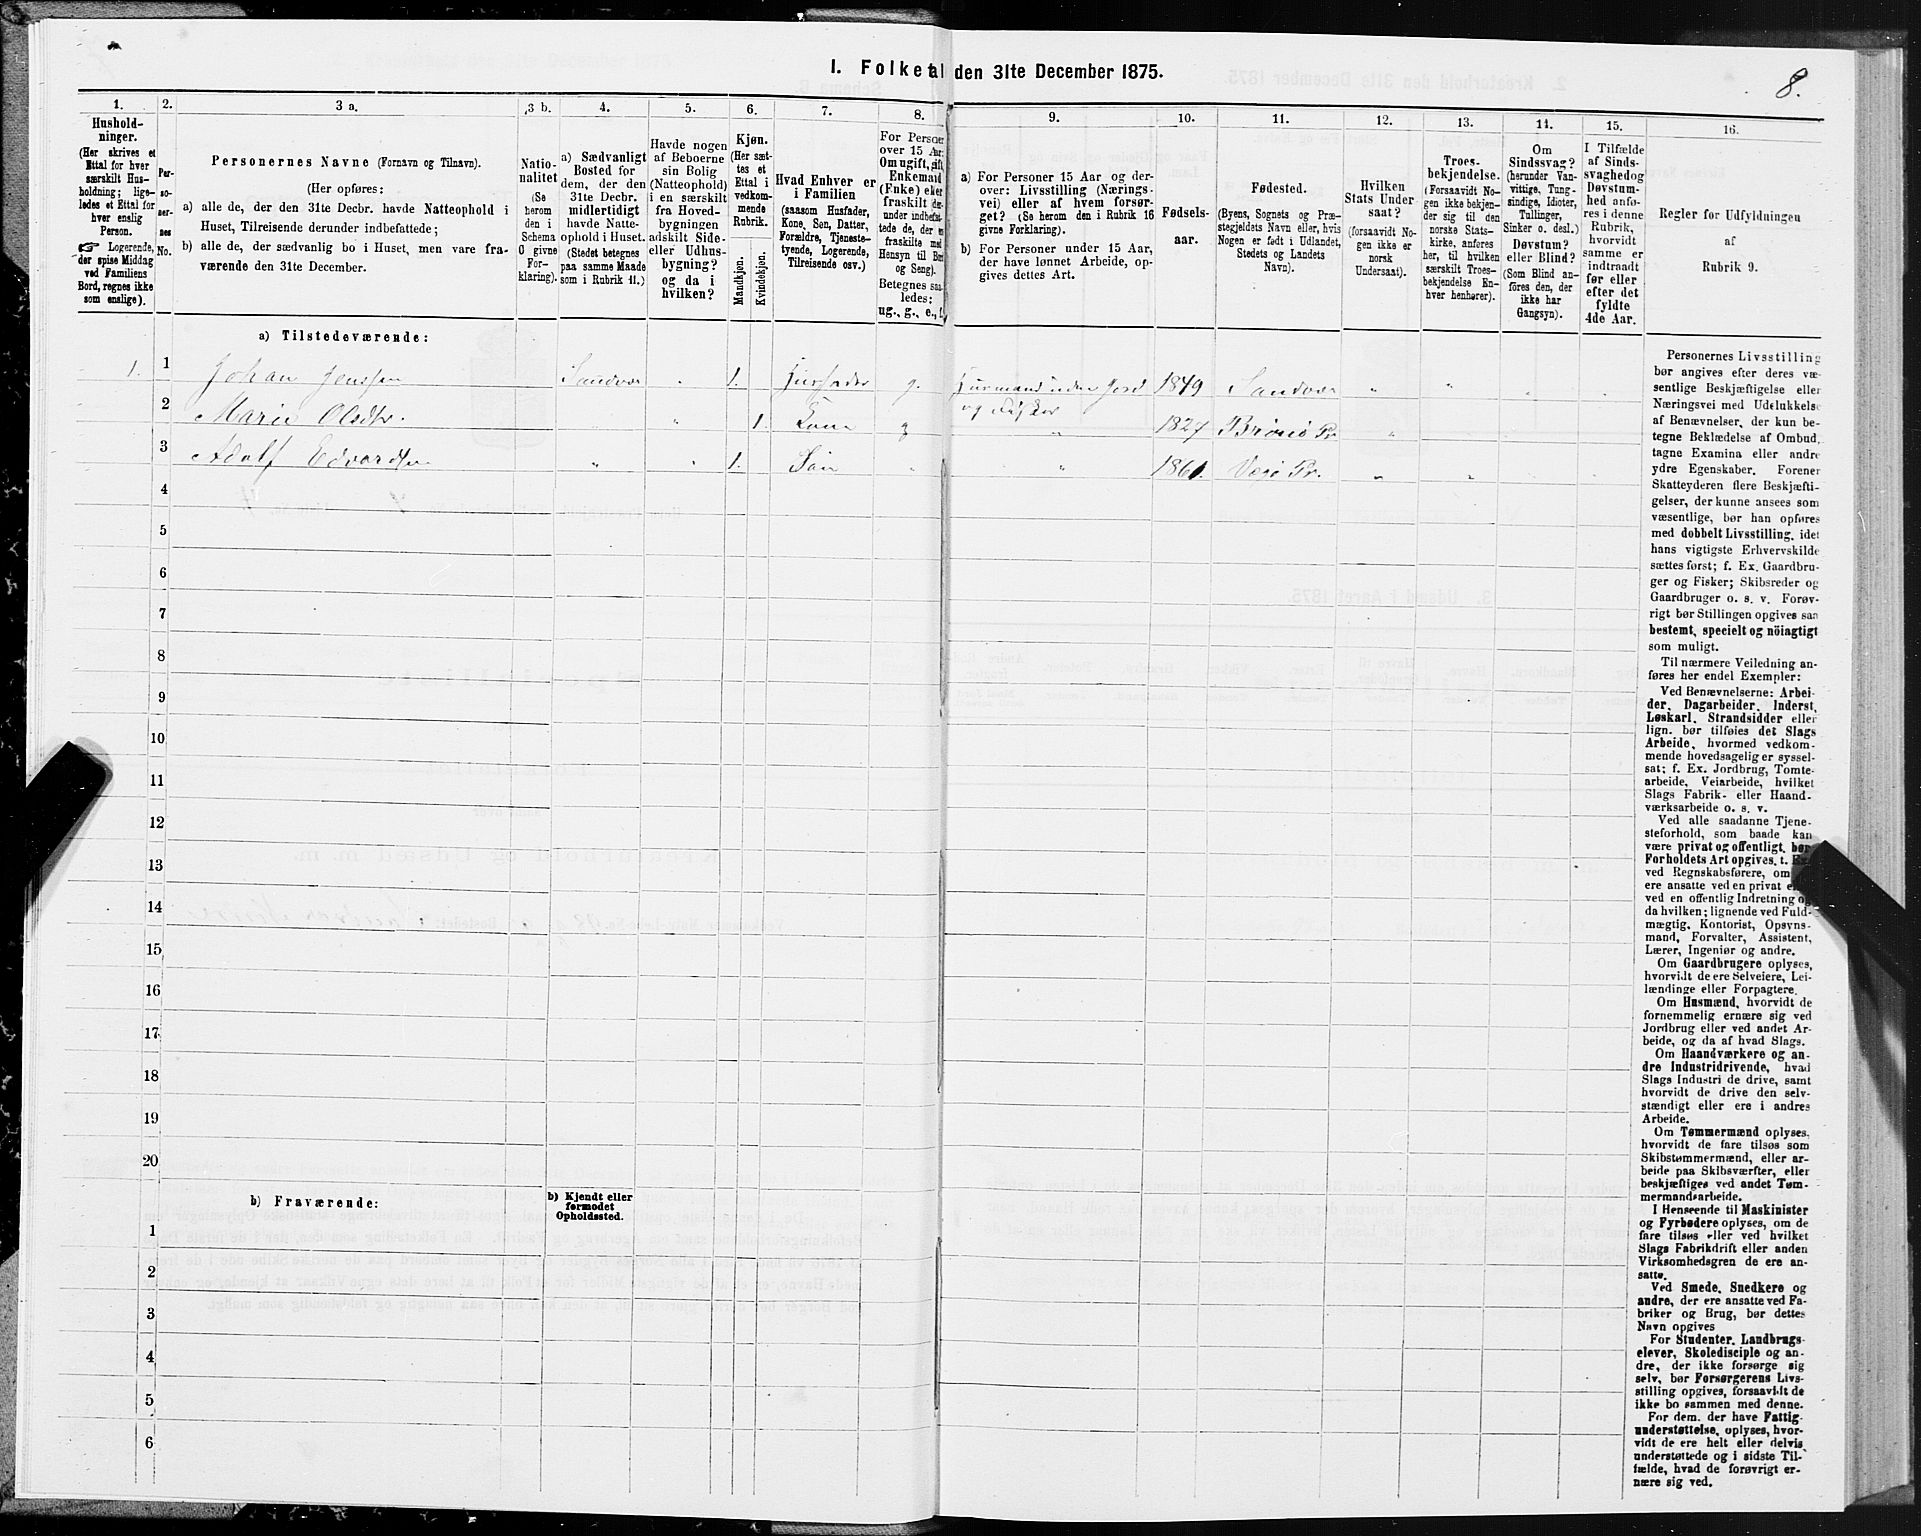 I. Folketal den 31te December 1875.
8.
1.
Hushold-
ninger.
(Her skrives et
Ettal for hver
særskilt Hus-
holdning; lige-
ledes et Ettal for
hver enslig
Person.
Logerende,
der spise Middag
ved Familiens
Bord, regnes ikke
som enslige).
2.
Per-
so-
ner-
nes
No.
3 a.
Personernes Navne (Fornavn og Tilnavn).
(Her opføres:
a) alle de, der den 31te Decbr. havde Natteophold i
Huset, Tilreisende derunder indbefattede;
b) alle de, der sædvanlig bo i Huset, men vare fra-
værende den 31te December.
3 b.
Natio-
nalitet
(Se
herom
den i
Schema
givne
For-
klaring).
4.
a) Sædvanligt
Bosted for
dem, der den
31te Decbr.
midlertidigt
havde Natte-
ophold i Huset.
(Stedet betegnes
paa samme Maade
som i Rubrik 11.)
5.
Havde nogen
af Beboerne
sin Bolig
(Natteophold)
i en særskilt
fra Hoved-
bygningen
adskilt Side-
eller Udhus-
bygning?
og da i
hvilken?
6.
Kjøn.
(Her sæt-
tes et
Ettal i
vedkom-
mende
Rubrik.
Mandkjøn.
Kvindekjøn.
7.
Hvad Enhver er
i Familien
(saasom Husfader,
Kone, Søn, Datter,
Forældre, Tjeneste-
tyende, Logerende,
Tilreisende osv.)
8.
For Personer
over 15 Aar:
Om ugift, gift,
Enkemand
(Enke) eller
fraskilt
Betegnes saa-
ledes:
ug., g., e., f.
9.
a) For Personer 15 Aar og der-
over: Livsstilling (Nærings-
vei) eller af hvem forsør-
get? (Se herom den i Rubrik 16
givne Forklaring).
b) For Personer under 15 Aar,
der have lønnet Arbeide, op-
gives dettes Art.
10.
Fødsels-
aar.
11.
Fødested.
(Byens, Sognets og Præ-
stegjeldets Navn eller, hvis
Nogen er født i Udlandet,
Stedets og Landets
Navn).
12.
Hvilken
Stats Under
saat?
(forsaavidt No-
gen ikke er
norsk
Undersaat).
13.
Troes-
bekjendelse.
(Forsaavidt No-
gen ikke bekjen-
der sig til den
norske Stats-
kirke, anføres
her, til hvilken
særskilt Troes-
bekjendelse En-
hver henhører).
14.
Om
Sindssvag?
(herunder Van-
vittige, Tung-
sindige, Idioter,
Tullinger,
Sinker o. desl.)
Døvstum?
eller Blind?
(Som Blind an-
føres den, der
ikke har
Gangsyn).
15.
I Tilfælde
af Sinds-
svaghed og
Døvstum-
hed anfø-
res i denne
Rubrik,
hvorvidt
samme er
indtraadt
før eller
efter det
fyldte
4de Aar.
16.
Regler for Udfyldningen
af
Rubrik 9.
a) Tilstedeværende:
1. 1 Johan Jenssen Sandvær " 1. Husfader g. Husmand uden Jord 1849 Sandvær " "
og Fisker
2 Marie Olsdtr. " 1. Kone g " 1827 Brönö Pr. "
3 Adolf Edvardsen " " 1. Sön " " 1861. Vegö Pr. " "
4
5
6
7
8
9
10
11
12
13
14
15
16
17
18
19
20
b) Fraværende:
b) Kjendt eller
formodet
Opholdssted.
1
2
3
4
5
6
Personernes Livsstilling
bør angives efter deres væ-
sentlige Beskjæftigelse eller
Næringsvei med Udelukkelse
af Benævnelser, der kun be-
tegne Beklædelse af Ombud,
tagne Examina eller andre
ydre Egenskaber. Forener
Skatteyderen flere Beskjæfti-
gelser, der kunne ansees som
væsentlige, bør han opføres
med dobbelt Livsstilling, idet
hans vigtigste Erhvervskilde
sættes først; f. Ex. Gaardbru-
ger og Fisker; Skibsreder og
Gaardbruger o. s. v. Forøv-
rigt bør Stillingen opgives saa
bestemt, specielt og nöiagtigt
som muligt.
Til nærmere Veiledning an-
føres her endel Exempler:
Ved Benævnelserne: Arbei-
der, Dagarbeider, Inderst,
Løskarl, Strandsidder eller
lign. bør tilføies det Slags
Arbeide, hvormed vedkom-
mende hovedsagelig er syssel-
sat; f. Ex. Jordbrug, Tomte-
arbeide, Veiarbeide, hvilket
Slags Fabrik- eller Haand-
værksarbeide o. s. v.
Ved alle saadanne Tjene-
steforhold, som baade kan
være privat og offentligt, bør
Forholdets Art opgives, f. Ex.
ved Regnskabsførere, om
ere ansatte ved en privat
ved en offentlig Indretning og
da hvilken; lignende ved Fuld-
mægtig, Kontorist, Opsyns-
mand, Forvalter, Assistent,
Lærer, Ingeniør og andre.
Om Gaardbrugere oplyses,
hvorvidt de ere Selveiere, Lei-
lændinge eller Forpagtere.
Om Husmænd, hvorvidt de
fornemmelig ernære sig ved
Jordbrug eller ved andet Ar-
beide, og da af hvad Slags.
Om Haandværkere og an-
dre Industridrivende, hvad
Slags Industri de drive, samt
hvorvidt de drive den selv-
stændigt eller ere i andres
Arbeide.
Om Tømmermænd oplyses,
hvorvidt de fare tilsøs som
Skibstømmermænd, eller ar-
beide paa Skibsværfter, eller
beskjæftiges ved andet Tøm-
mermandsarbeide.
I Henseende til Maskinister
og Fyrbødere oplyses, om de
fare tilsøs eller ved hvilket
Slags Fabrikdrift eller anden
Virksomhedsgren de ere an-
satte.
Ved Smede, Snedkere og
andre, der ere ansatte ved Fa-
briker og Brug, bør dettes
Navn opgives
For Studenter, Landbrugs-
elever, Skoledisciple og an-
dre, der ikke forsørge sig
selv, bør Forsørgerens Livs-
stilling opgives, forsaavidt de
ikke bo sammen med denne.
For dem, der have Fattig-
understøttelse, oplyses, hvor-
vidt de ere helt eller delvis
understøttede og i sidste Til-
fælde, hvad de forøvrigt er-
nære sig ved.